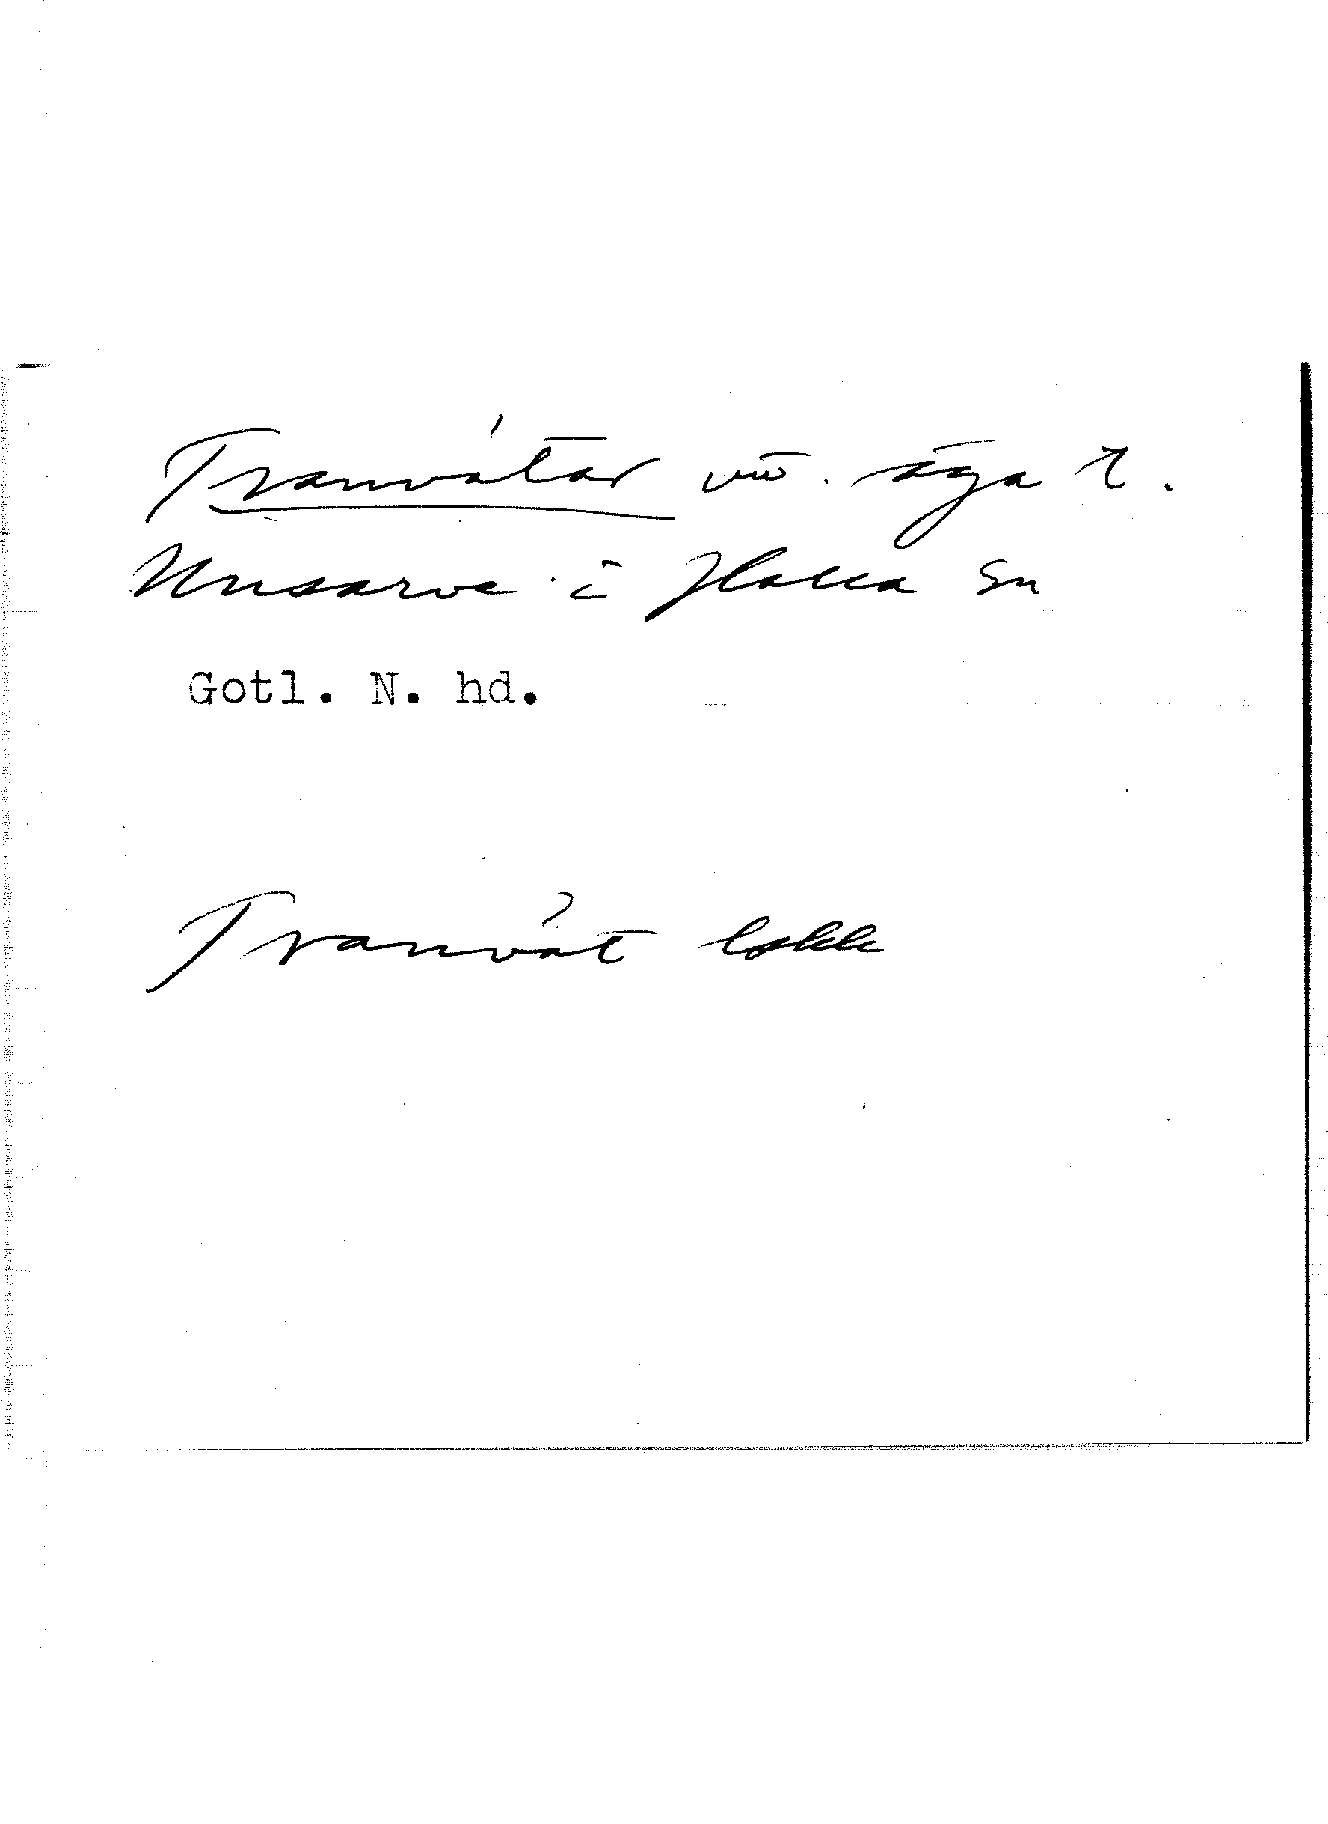 Tranvåtar vid äga t.
Unsarve i Halla sn
Gotl. N. hd.
Tranvåt